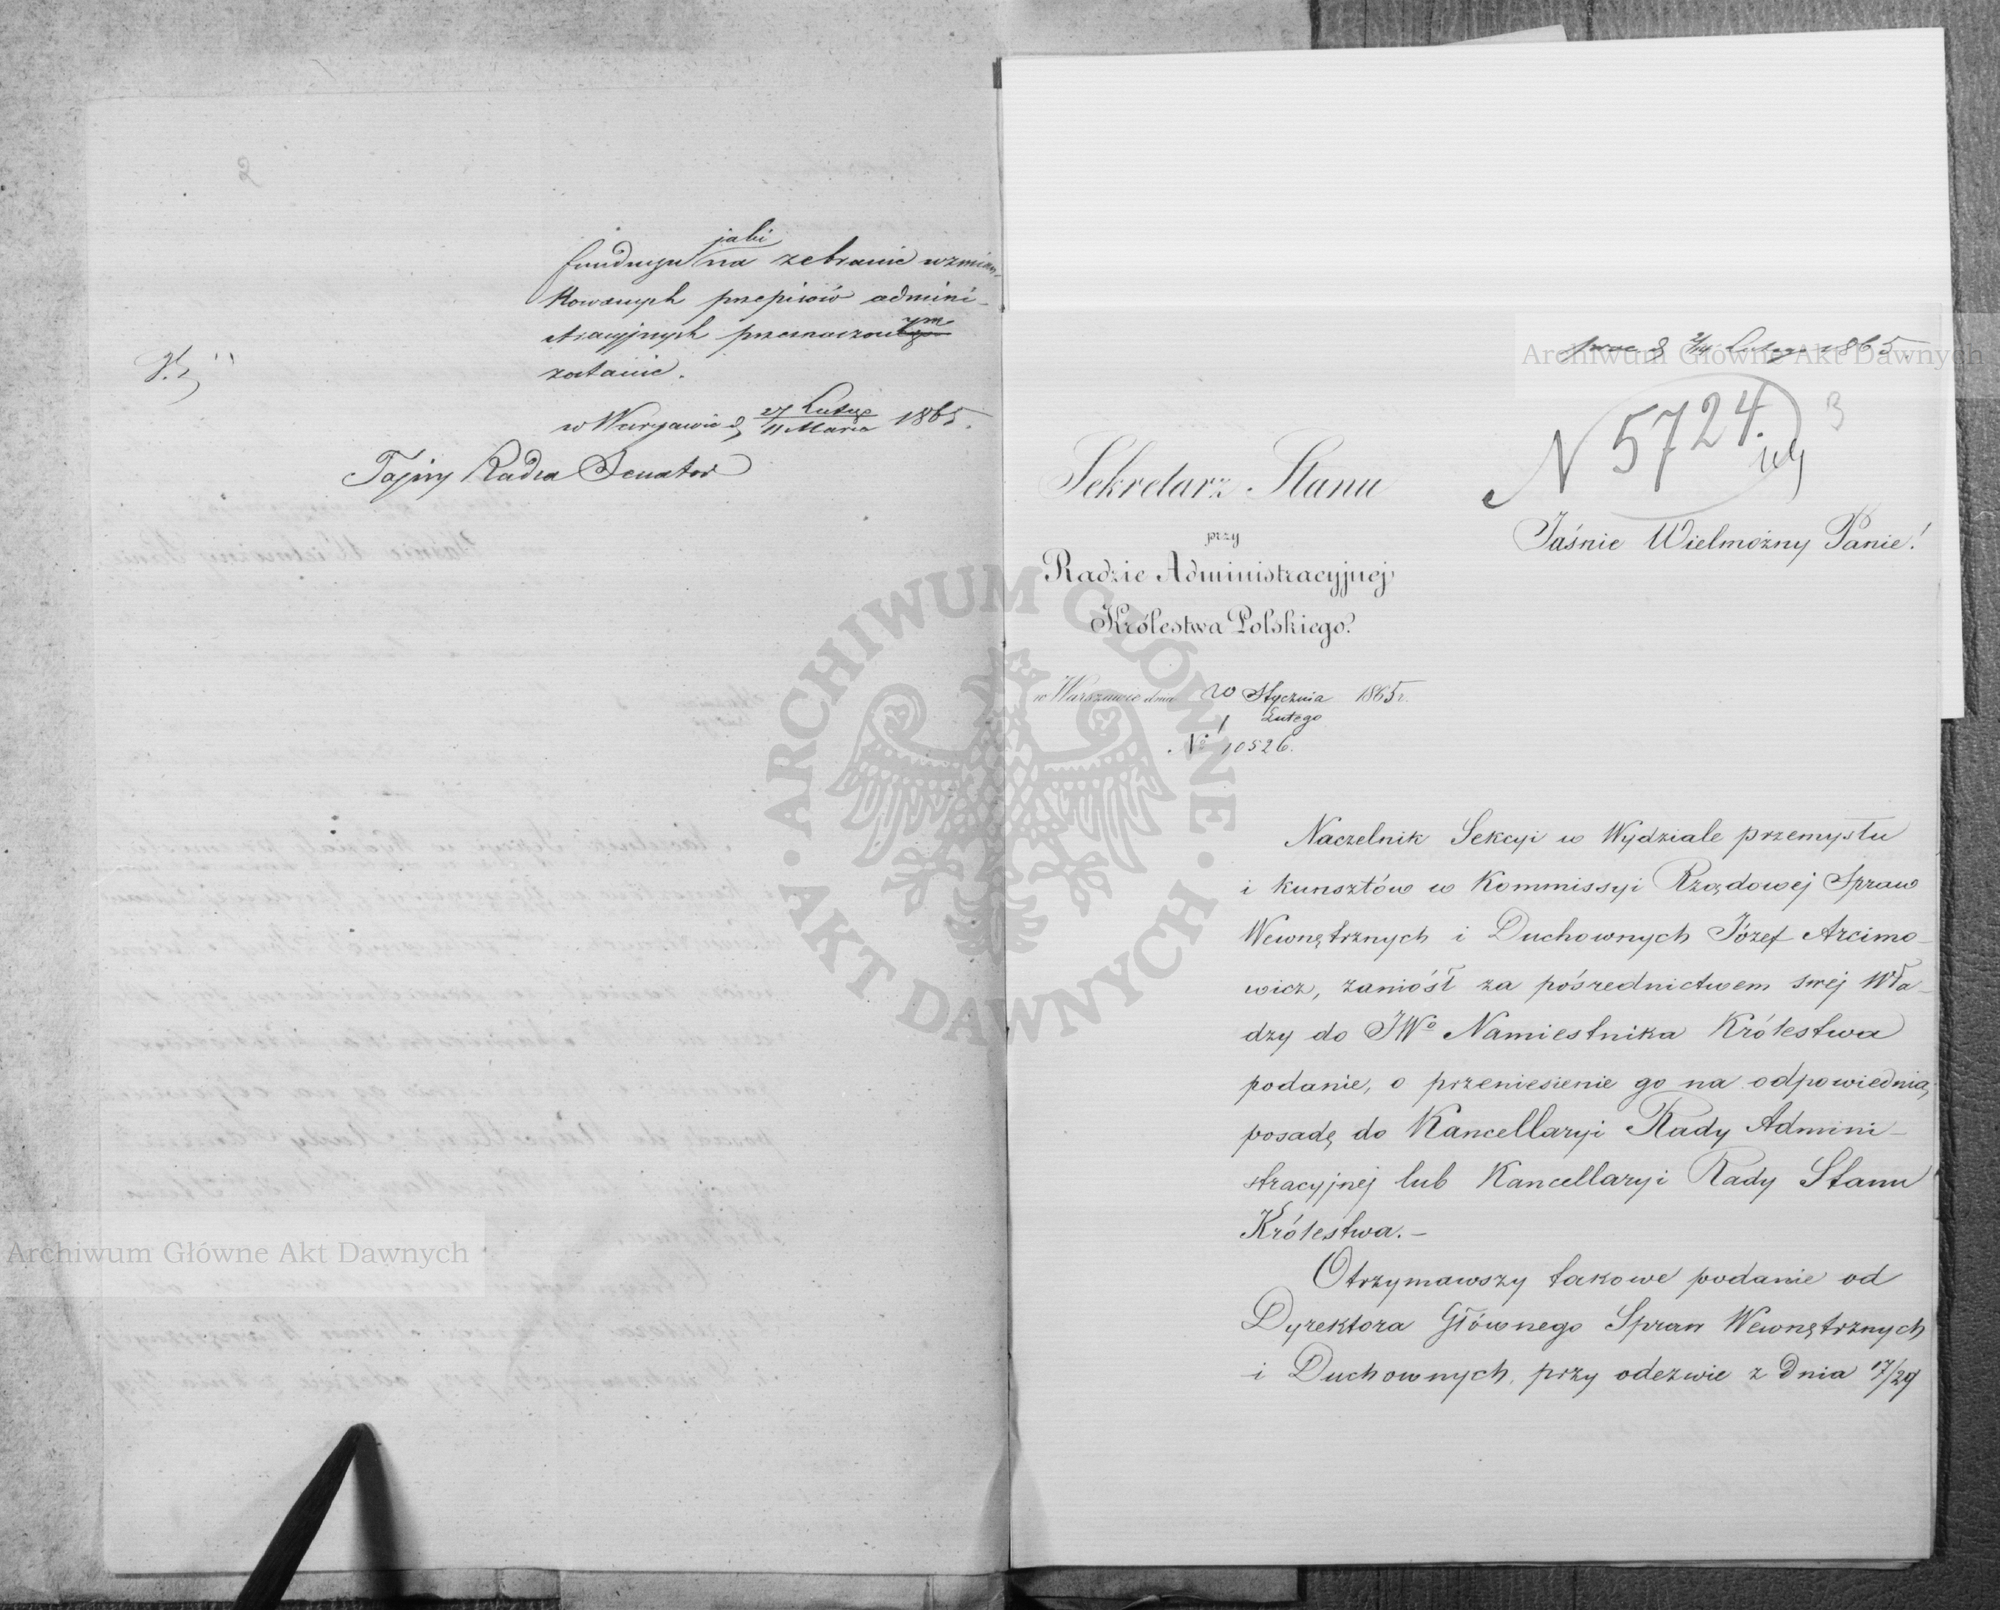 jaki
funduszu na zebranie wzmian-
kowanych przepisów admini-
stracyjnych przeznaczonym
zostanie.
w Warszawie d. 27 Lutego / 11 Marca 1865.
Tajny Radca Senator
prez d 2/14 Lutego 1865.
N 5724.
3
Sekretarz Stanu
przy
Radzie Administracyjnej
Królestwa Polskiego.
Jaśnie Wielmożny Panie!
w Warszawie dnia 20 Stycznia 1865 r.
1 Lutego
№ 10526.
Naczelnik Sekcyi w Wydziale przemysłu
i kunsztów w Kommissyi Rządowej Spraw
Wewnętrznych i Duchownych Józef Arcimo-
wicz, zaniósł za pośrednictwem swej Wła-
dzy do JWo Namiestnika Królestwa
podanie, o przeniesienie go na odpowiednią
posadę do Kancellaryi Rady Admini-
stracyjnej lub Kancellaryi Rady Stanu
Królestwa.-
Otrzymawszy takowe podanie od
Dyrektora Głównego Spraw Wewnętrznych
i Duchownych, przy odezwie z dnia 17/29
ARCHIWUM GŁÓWNE AKT DAWNYCH
Archiwum Główne Akt Dawnych
Archiwum Główne Akt Dawnych